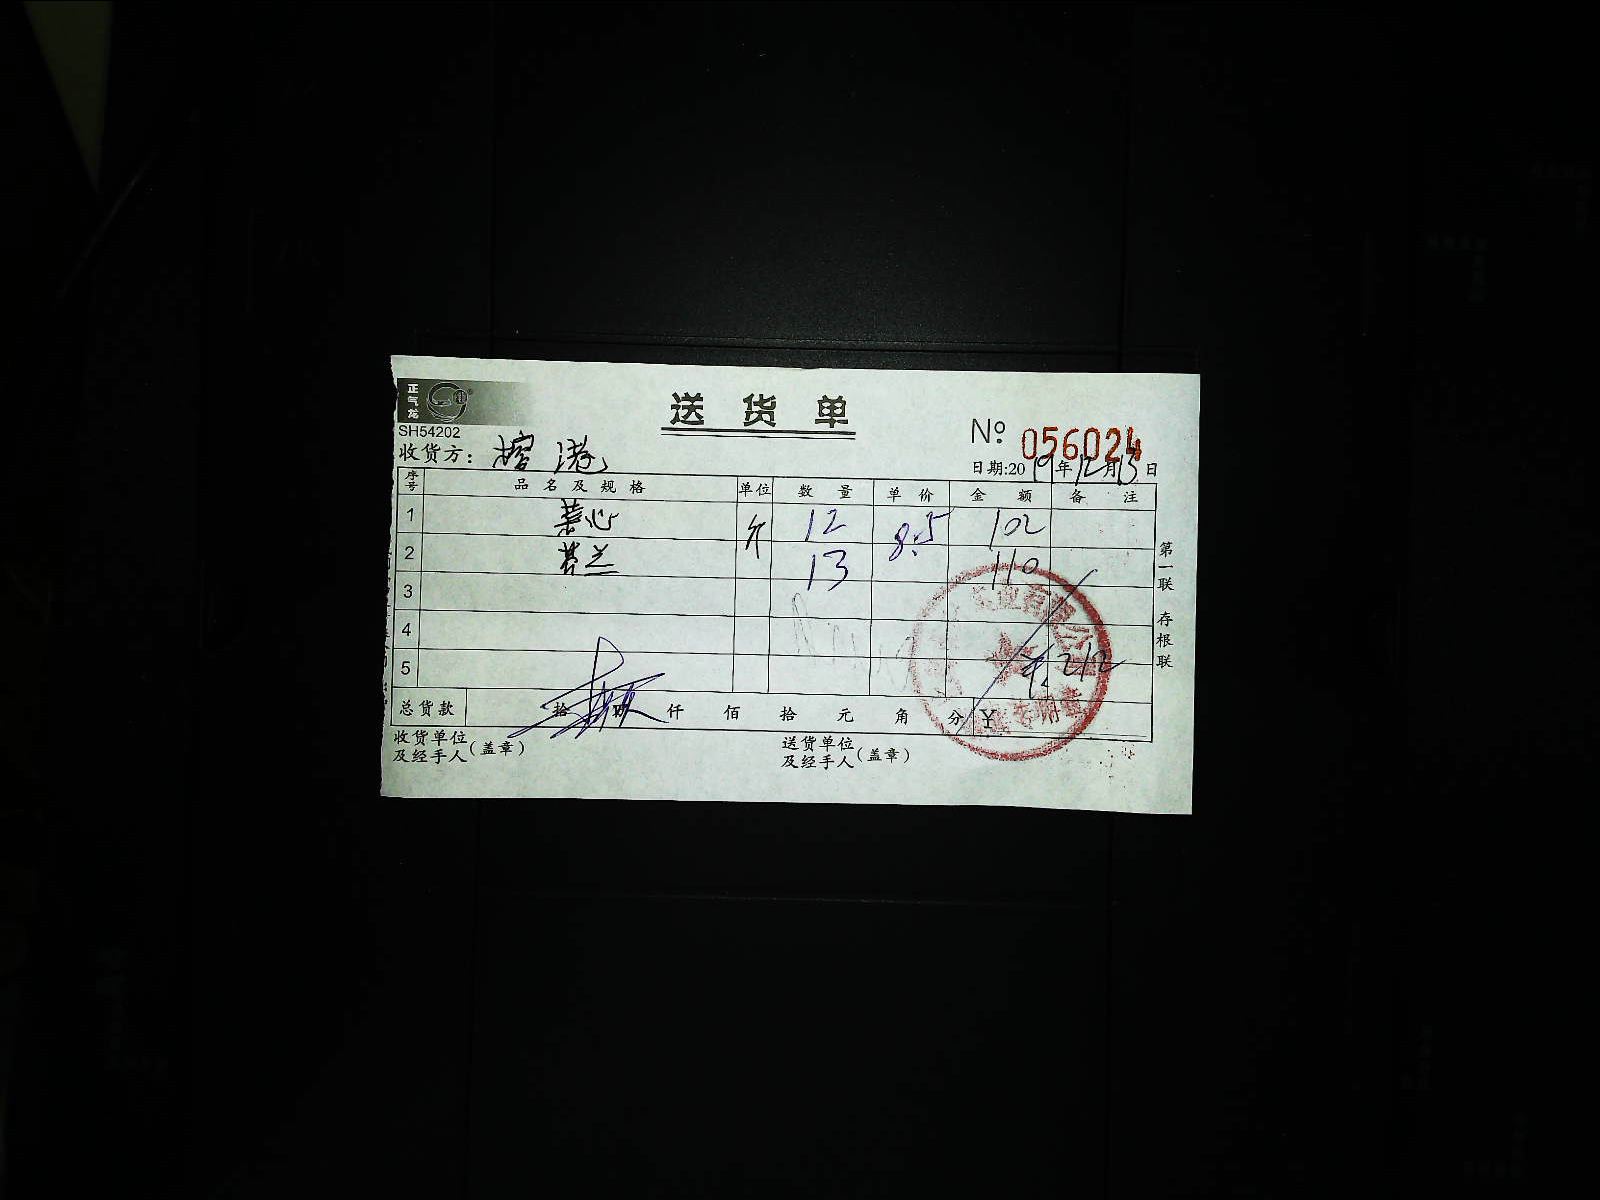 正气龙
SH54202
送货单
№ 056024
收货方: 榕港
日期:2019年12月13日
序号 品名及规格 单位 数量 单价 金额 备注
1 菜心 斤 12 8.5 102
2 芥兰 13 110
3
4
5 212
总货款 拾 仟 佰 拾 元 角 分 ¥
收货单位及经手人(盖章) 送货单位及经手人(盖章)
第一联 存根联